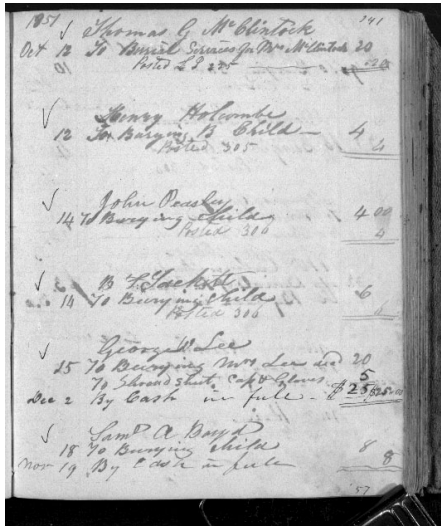 1851 Thomas G McClintock 241
Oct 12 To Burial Services for Mrs McClintock 20
Posted L P 20
Henry Holcombe
12 For Burying B Child 4
Posted 305 4
John Peasley
14 To Burying Child 4 00
Posted 306 4
B L Sackett
14 To Burying Child 6
Posted 306 6
George W Lee
25 To Burying Mrs Lee 20
To Shroud Sheet, Cap & Gloves 5
Dec 2 By Cash in full $25
Saml A Boyd
18 To Burying Child 8
Nov 19 By Cash in full 8
57